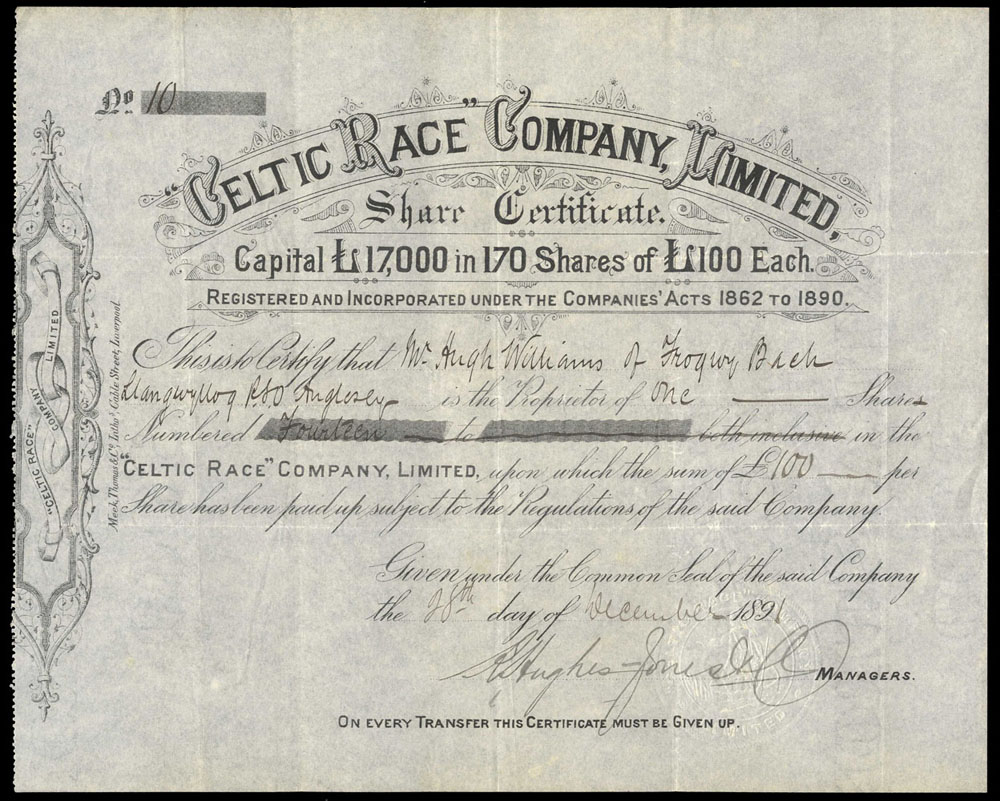 No 10
"CELTIC RACE" COMPANY, LIMITED,
Share Certificate.
Capital £17,000 in 170 Shares of £100 Each.
REGISTERED AND INCORPORATED UNDER THE COMPANIES' ACTS 1862 TO 1890.
This is to Certify that Mr Hugh Williams of Frogwy Bach
Llangwyllog R.S.O Anglesey is the Proprietor of One Shares
Numbered Fourteen to both inclusive in the
"CELTIC RACE" COMPANY, LIMITED, upon which the sum of £100 per
Share has been paid up subject to the Regulations of the said Company.
Given under the Common Seal of the said Company
the 28th day of December 1891
R Hughes-Jones & Co MANAGERS.
ON EVERY TRANSFER THIS CERTIFICATE MUST BE GIVEN UP.
"CELTIC RACE" COMPANY LIMITED
Meek, Thomas & Co. Litho. Cable Street, Liverpool.